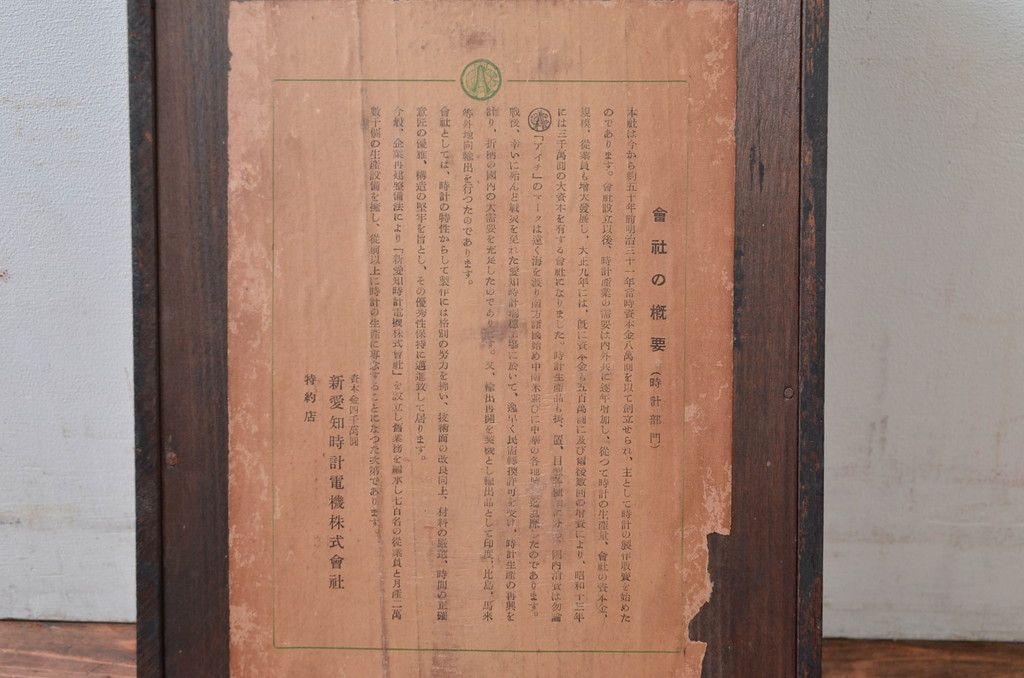 會社の概要（時計部門）
本社は今から約五十年前明治三十一年當時資本金八萬圓を以て創立せられ、主として時計の製作販賣を始めた
のであります。會社設立以後、時計産業の需要は内外共に逐年増加し、從つて時計の生産量、會社の資本金、
規模、從業員も增大發展し、大正九年には、既に資本金も五百萬圓に及び爾後數囘の增資により、昭和十三年
には三千萬圓の大資本を有する會社になりました。時計生産品も掛、置、目覺 國内消費は勿論
「アイチ」のマークは遠く海を渡り南方諸國始め中南米並びに中華の各地 たのであります。
戰後、幸いに殆んど戰災を免れた愛知時計 に於いて、逸早く民需轉換許可を受け、時計生産の再興を
計り、折柄の國内の大需要を充足したのであります。又、輸出再開を契機とし輸出品として印度、比島、馬來
等外地向輸出を行つたのであります。
會社としては、時計の特性からして製作には格別の努力を拂い、技術面の改良向上、材料の嚴選、時間の正確
意匠の優雅、構造の堅牢を旨とし、その優秀性保持に邁進致して居ります。
今般、企業再建整備法により「新愛知時計電機株式會社」を設立し舊業務を繼承し七百名の從業員と月産一萬
數千個の生産設備を擁し、從前以上に時計の生産に專念することになつた次第であります。
資本金四千萬圓
新愛知時計電機株式會社
特約店